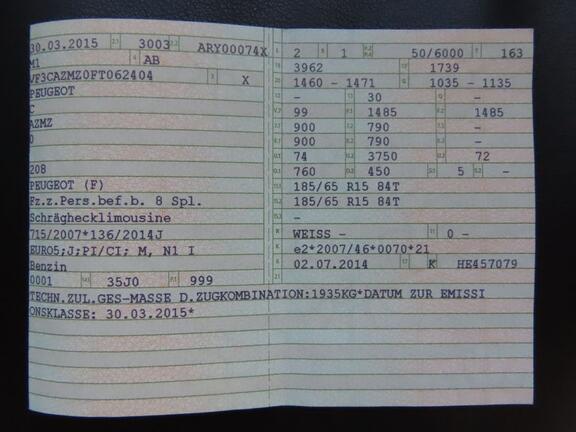 30.03.2015 3003 ARY00074X
M1 AB
VF3CAZMZ0FT062404 X
PEUGEOT
C
AZMZ
0
208
PEUGEOT (F)
Fz.z.Pers.bef.b. 8 Spl.
Schräghecklimousine
715/2007*136/2014J
EURO5;J;PI/CI; M, N1 I
Benzin
0001 35J0 999
2 1 50/6000 163
3962 1739
1460 - 1471 1035 - 1135
- 30 -
99 1485 1485
900 790 -
900 790 -
74 3750 72
760 450 5 -
185/65 R15 84T
185/65 R15 84T
-
WEISS - 0 -
e2*2007/46*0070*21
02.07.2014 K HE457079
TECHN.ZUL.GES-MASSE D.ZUGKOMBINATION:1935KG*DATUM ZUR EMISSI
ONSKLASSE: 30.03.2015*